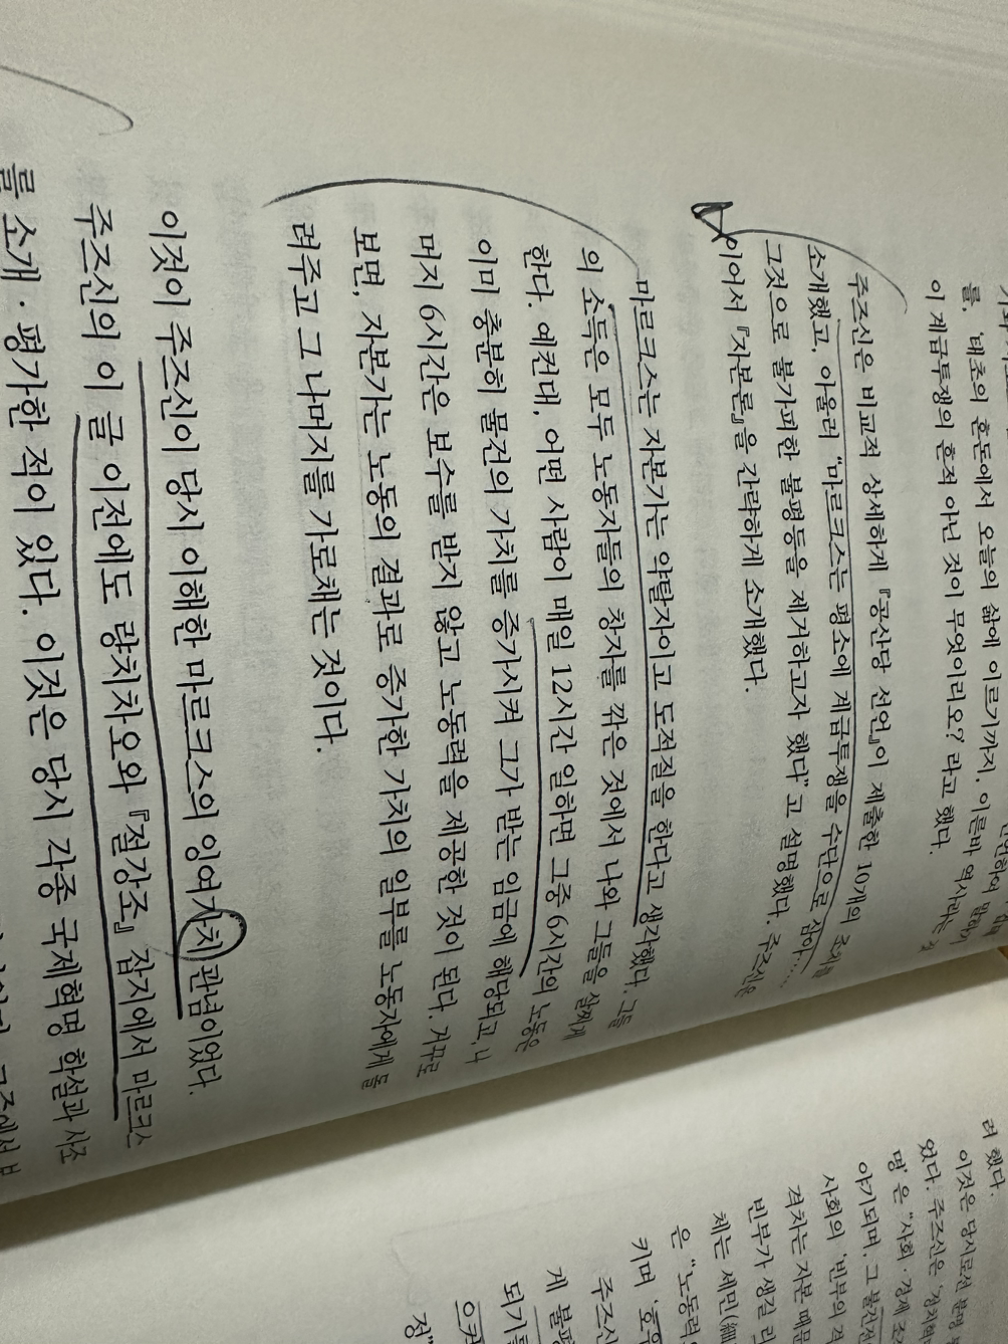 를, '태초의 혼돈에서 오늘의 삶에 이르기까지, 이른바 역사라는 것
이 계급투쟁의 흔적 아닌 것이 무엇이리오?' 라고 했다.
주즈신은 비교적 상세하게 『공산당 선언』이 제출한 10개의 조치를
소개했고, 아울러 "마르크스는 평소에 계급투쟁을 수단으로 삼아……
그것으로 불가피한 불평등을 제거하고자 했다"고 설명했다. 주즈신은
이어서 『자본론』을 간략하게 소개했다.
마르크스는 자본가는 약탈자이고 도적질을 한다고 생각했다. 그들
의 소득은 모두 노동자들의 창자를 깎은 것에서 나와 그들을 살찌게
한다. 예컨대, 어떤 사람이 매일 12시간 일하면 그중 6시간의 노동은
이미 충분히 물건의 가치를 증가시켜 그가 받는 임금에 해당되고, 나
머지 6시간은 보수를 받지 않고 노동력을 제공한 것이 된다. 거꾸로
보면, 자본가는 노동의 결과로 증가한 가치의 일부를 노동자에게 돌
려주고 그 나머지를 가로채는 것이다.
이것이 주즈신이 당시 이해한 마르크스의 잉여가치 관념이었다.
주즈신의 이 글 이전에도 량치차오와 『절강조』 잡지에서 마르크스
를 소개·평가한 적이 있다. 이것은 당시 각종 국제혁명 학설과 사조
려 했다.
이것은 당시로선 분명
었다. 주즈신은 '정치혁
명'은 "사회·경제 조
야기되며, 그 불완전
사회의 '빈부의 격
격차는 자본 때문
빈부가 생길 리
체는 세민(細
은 "노동력
키며 '호우
주즈신
게 불평
되기를
으켜
정"